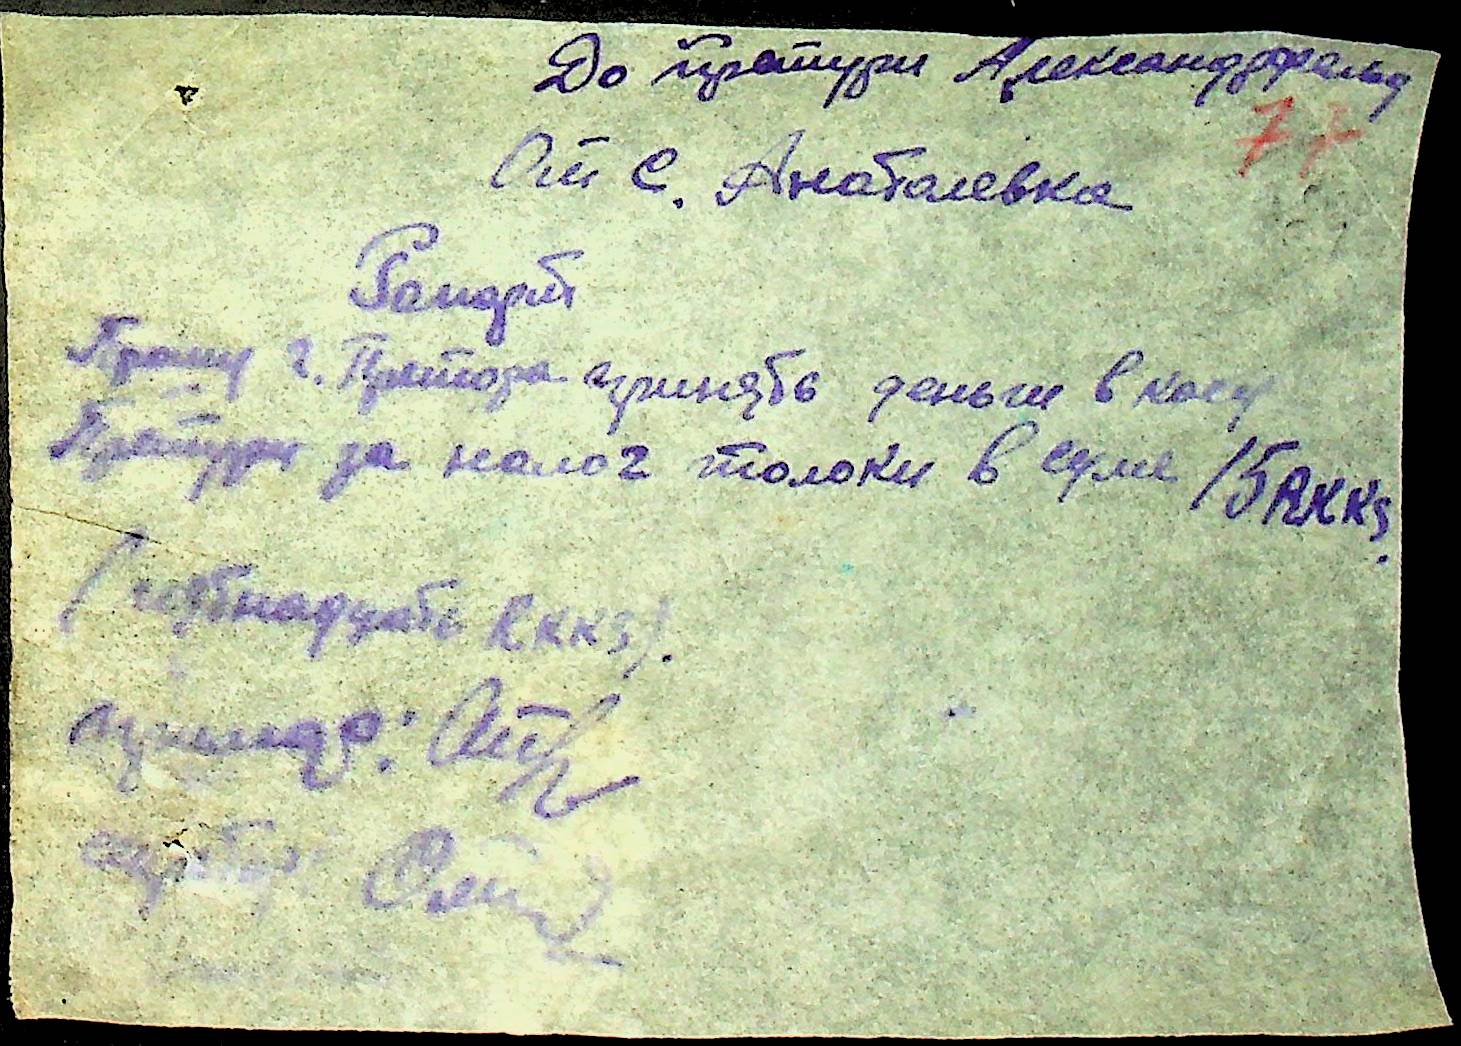 До претури Александрфельд
77
От с. Анатолевка
Рапорт
Прошу г. Претора принять деньги в касу
Претури за налог толоки в суме 15 RKKS.
(пятьнадцать RKKS).
примар:
секретар: